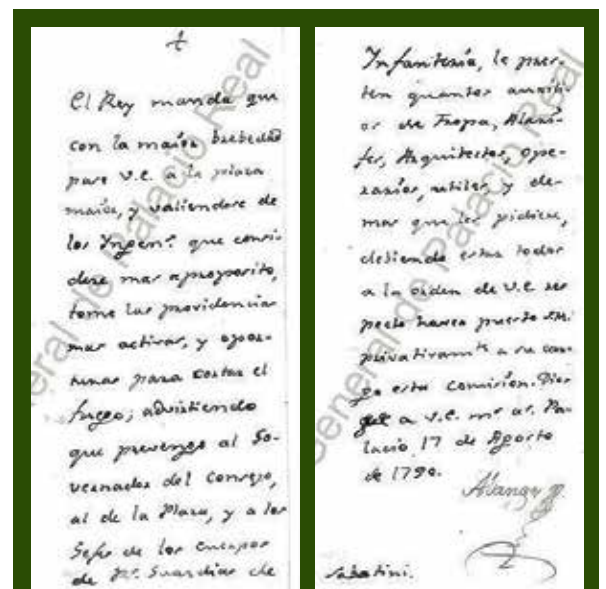 El Rey manda que
con la maior brebedad
pase V.E. a la plaza
maior, y valiendose de
los Yngen.s que consi-
dere mas aproposito,
tome las providencias
mas activas, y opor-
tunas para cortar el
fuego; advirtiendo
que prevengo al Go-
vernador del Consejo,
al de la Plaza, y a los
Gefes de los Cuerpos
de R.s Guardias de
Infanteria, le pres-
ten quantos auxili-
os de Tropa, Alari-
fes, Arquitectos, ope-
rarios, utiles, y de-
mas que les pidiese,
debiendo estar todos
a la orden de V.E. res
pecto haver puesto SM.
privativam.te a su car-
go esta Comision. Dios
gue a V.E. m.s a.s. Pa-
lacio 17 de Agosto
de 1790.
Alange
Sabatini.
General de Palacio Real
General de Palacio Real